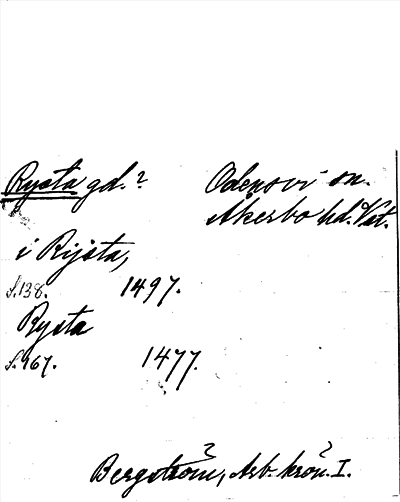 Rysta gd.?
Odensvi sn.
Åkerbo hd. Vst.
i Rijsta,
s.138. 1497.
Rysta
s.167. 1477.
Bergström, Arb. krön. I.